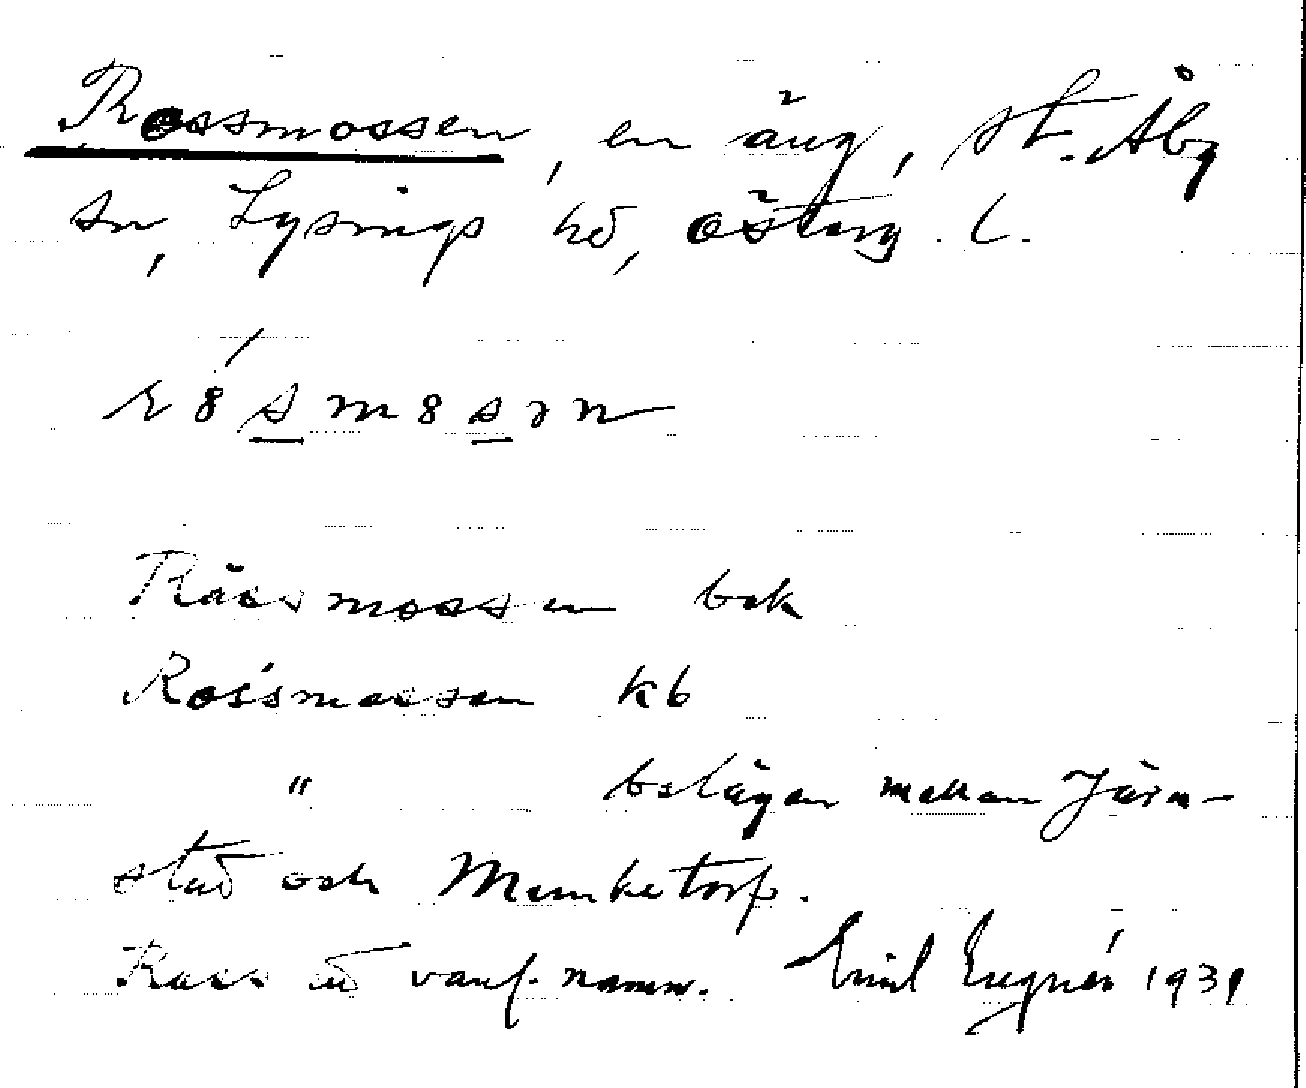 Rossmossen, en äng, St. Åby
sn, Lysings hd, Österg. l.
r 8 s m 8 s ɿ n
Råssmossen bok
Rossmossen kb
" belägen mellan Järn-
stad och Munketorp.
Ross ett vanl. namn. Emil Engnér 1931